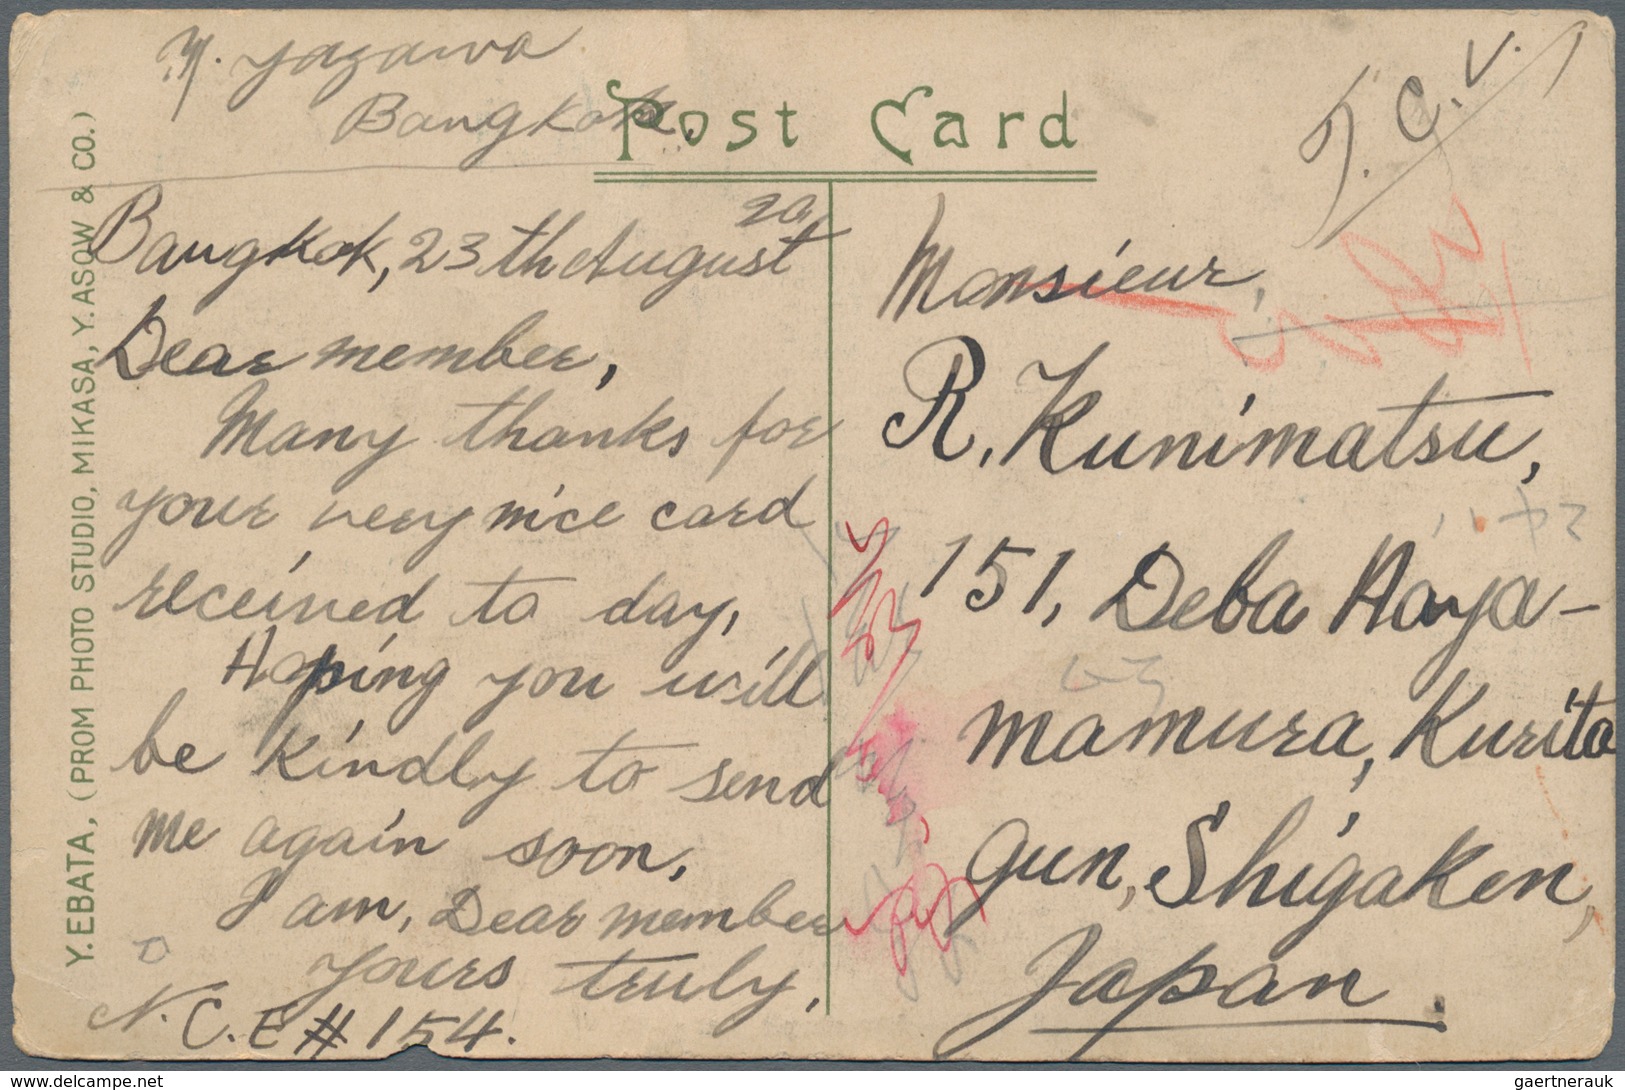 Y. Yazawa
Bangkok.
Post Card
T. C. V.
Bangkok, 23th August
20
Dear member,
Many thanks for
your very nice card
received to day,
Hoping you will
be kindly to send
me again soon,
I am, Dear member
yours truly,
N.C.E # 154.
Monsieur,
R. Kunimatsu,
151, Deba Haya-
mamura, Kurita
gun, Shigaken,
Japan.
Y. EBATA, (PROM PHOTO STUDIO, MIKASA, Y. ASOW & CO.)
www.delcampe.net
gaertnerauk